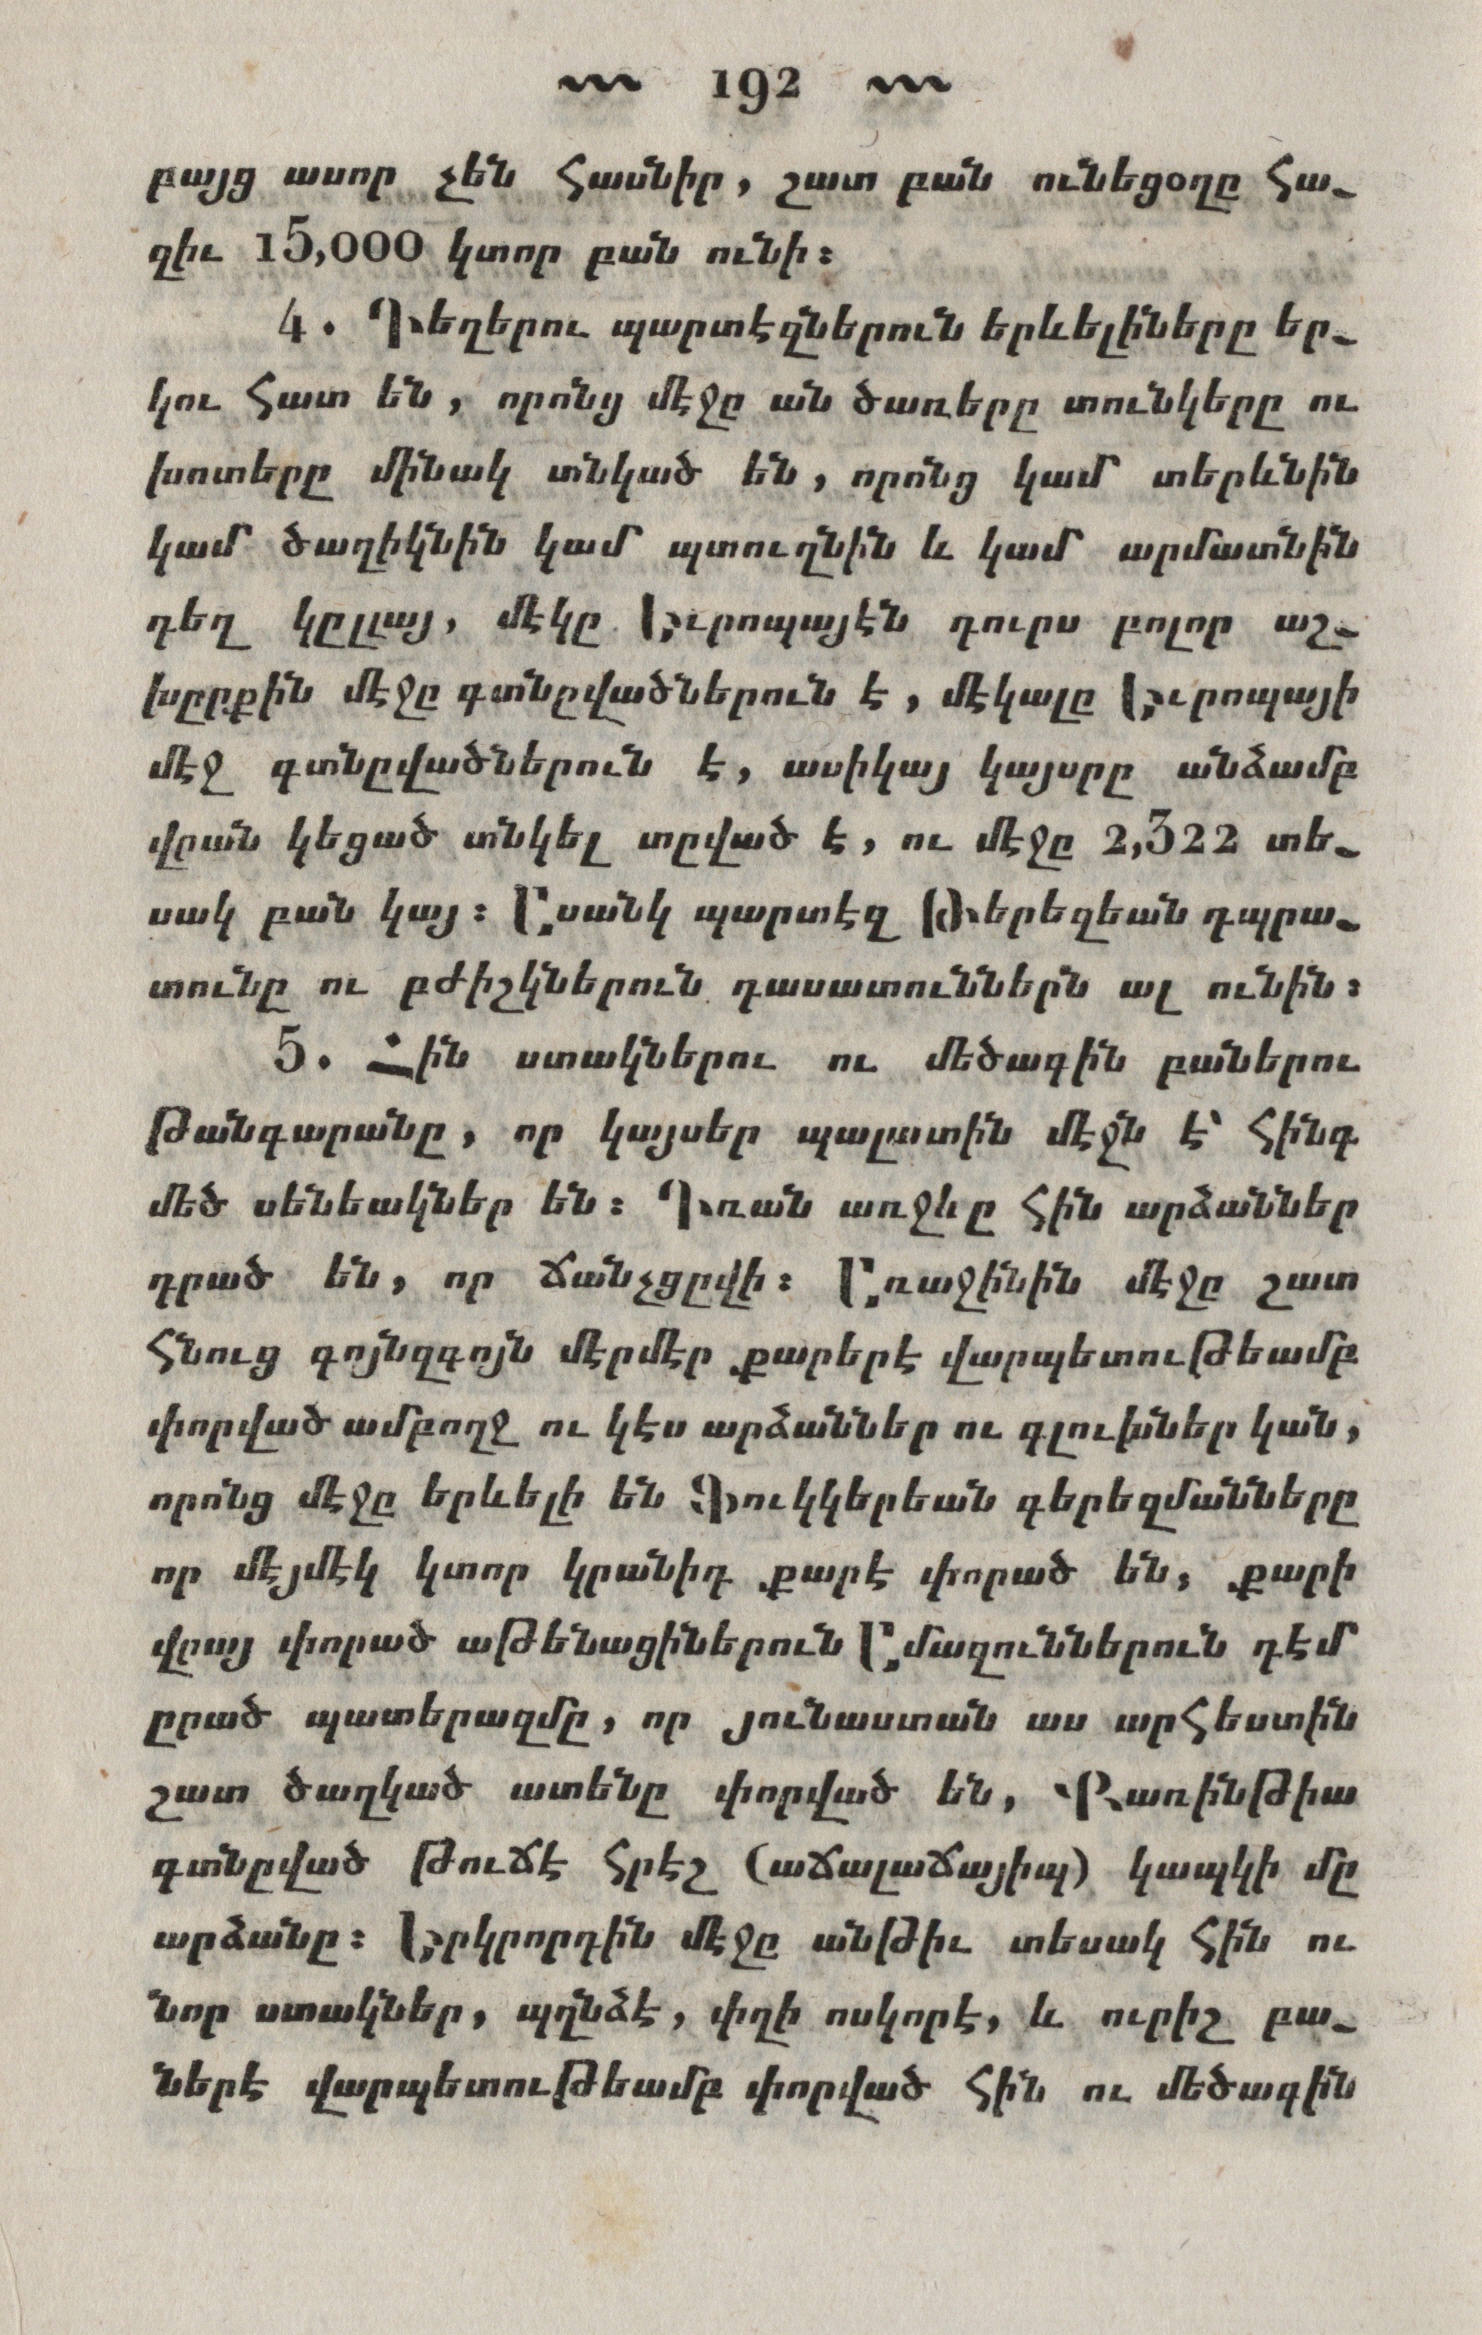 192
բայց ասոր չեն հասնիր, շատ բան ունեցօղը հա-
զիւ 15,000 կտոր բան ունի:
4. Դեղերու պարտէզներուն երևելիները եր-
կու հատ են, որոնց մէջը ան ծառերը տունկերը ու
խոտերը մինակ տնկած են, որոնց կամ տերևնին
կամ ծաղիկնին կամ պտուղնին և կամ արմատնին
դեղ կըլլայ, մէկը Եւրոպայէն դուրս բոլոր աշ-
խըրքին մէջը գտնըվածներուն է, մէկալը Եւրոպայի
մէջ գտնըվածներուն է, ասիկայ կայսրը անձամբ
վրան կեցած տնկել տըված է, ու մէջը 2,322 տե-
սակ բան կայ: Ասանկ պարտէզ Թերեզեան դպրա-
տունը ու բժիշկներուն դասատուններն ալ ունին:
5. Հին ստակներու ու մեծագին բաներու
թանգարանը, որ կայսեր պալատին մէջն է՝ հինգ
մեծ սենեակներ են: Դռան առջևը հին արձաններ
դրած են, որ ճանչցըվի: Առաջինին մէջը շատ
հնուց գոյնզգոյն մէրմէր քարերէ վարպետութեամբ
փորված ամբողջ ու կէս արձաններ ու գլուխներ կան,
որոնց մէջը երևելի են Ֆուկկերեան գերեզմանները
որ մէյմէկ կտոր կրանիդ քարէ փորած են, քարի
վրայ փորած աթենացիներուն Ամազուններուն դէմ
ըրած պատերազմը, որ յունաստան աս արհեստին
շատ ծաղկած ատենը փորված են, Քառինթիա
գտնըված թուճէ հրէշ (աճալաճայիպ) կապկի մը
արձանը: Երկրորդին մէջը անթիւ տեսակ հին ու
նոր ստակներ, պղնձէ, փղի ոսկորէ, և ուրիշ բա-
ներէ վարպետութեամբ փորված հին ու մեծագին